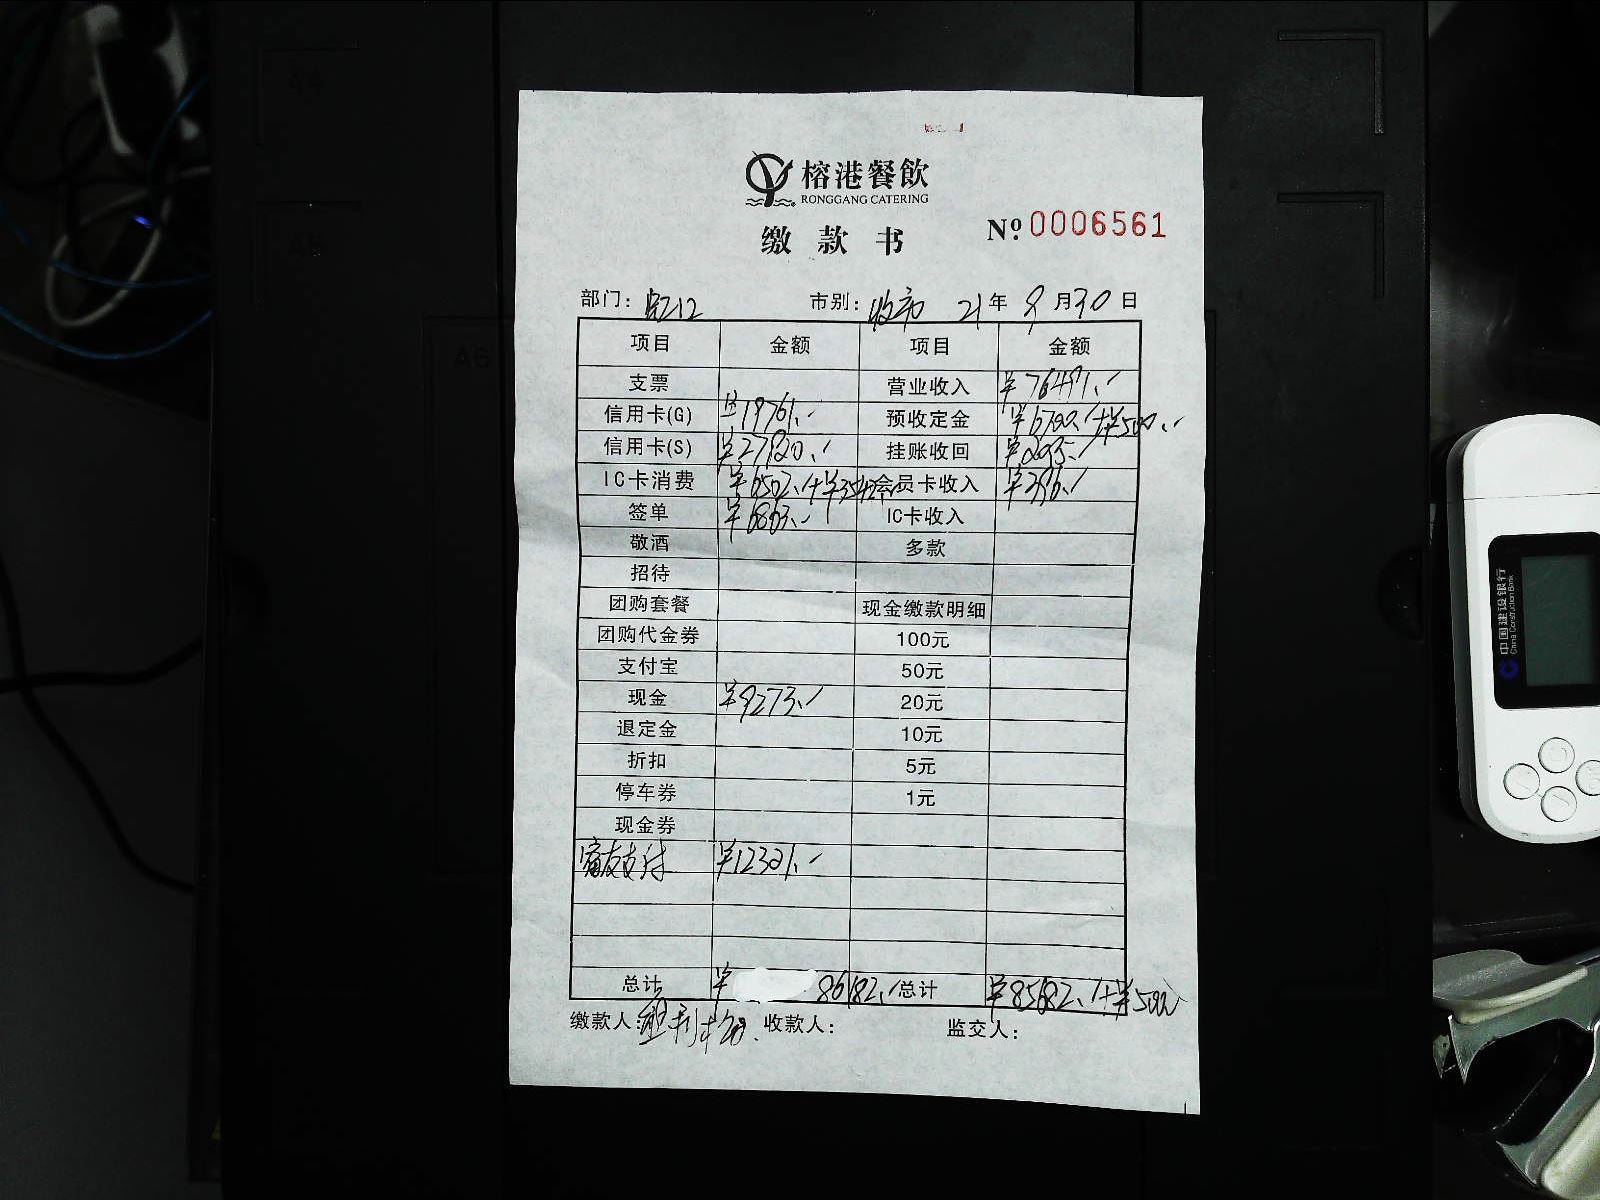 榕港餐飲
RONGGANG CATERING
缴款书
Nº 0006561
部门: 虹12 市别: 收市 21年 9月30日
项目 金额 项目 金额
支票 营业收入 ¥76491.-
信用卡(G) ¥19761.- 预收定金 ¥6700.-+¥500.-
信用卡(S) ¥27920.- 挂账收回
IC卡消费 会员卡收入 ¥396.-
签单 ¥6863.- IC卡收入
敬酒 多款
招待
团购套餐 现金缴款明细
团购代金券 100元
支付宝 50元
现金 ¥9273.- 20元
退定金 10元
折扣 5元
停车券 1元
现金券
支付 ¥12321.-
总计 ¥86182.- 总计 ¥85682.-+¥500
缴款人: 收款人: 监交人:
A6
中国建设银行
China Construction Bank